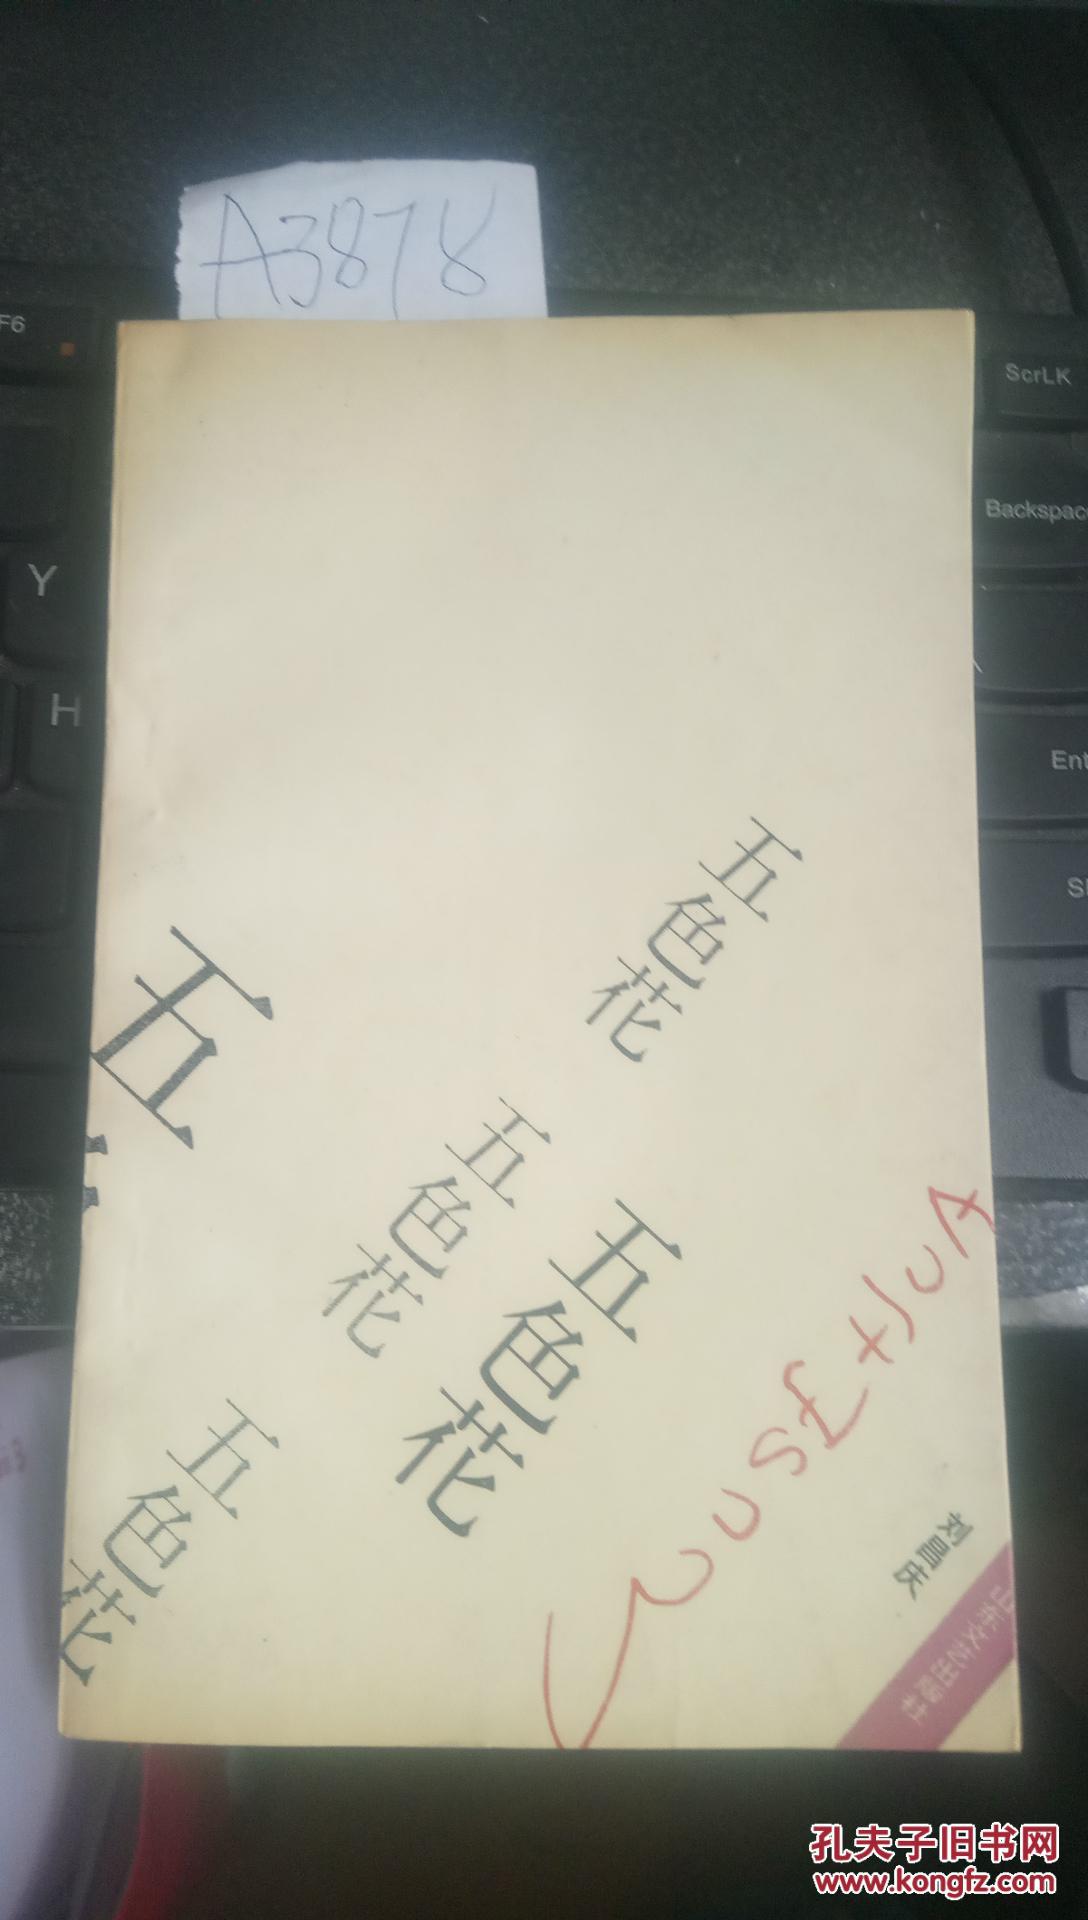 A3878
F6
ScrLK
Y
Backspac
H
Ent
五色花
五
五色花
五色花
五色花
刘昌庆
山东文艺出版社
孔夫子旧书网
www.kongfz.com